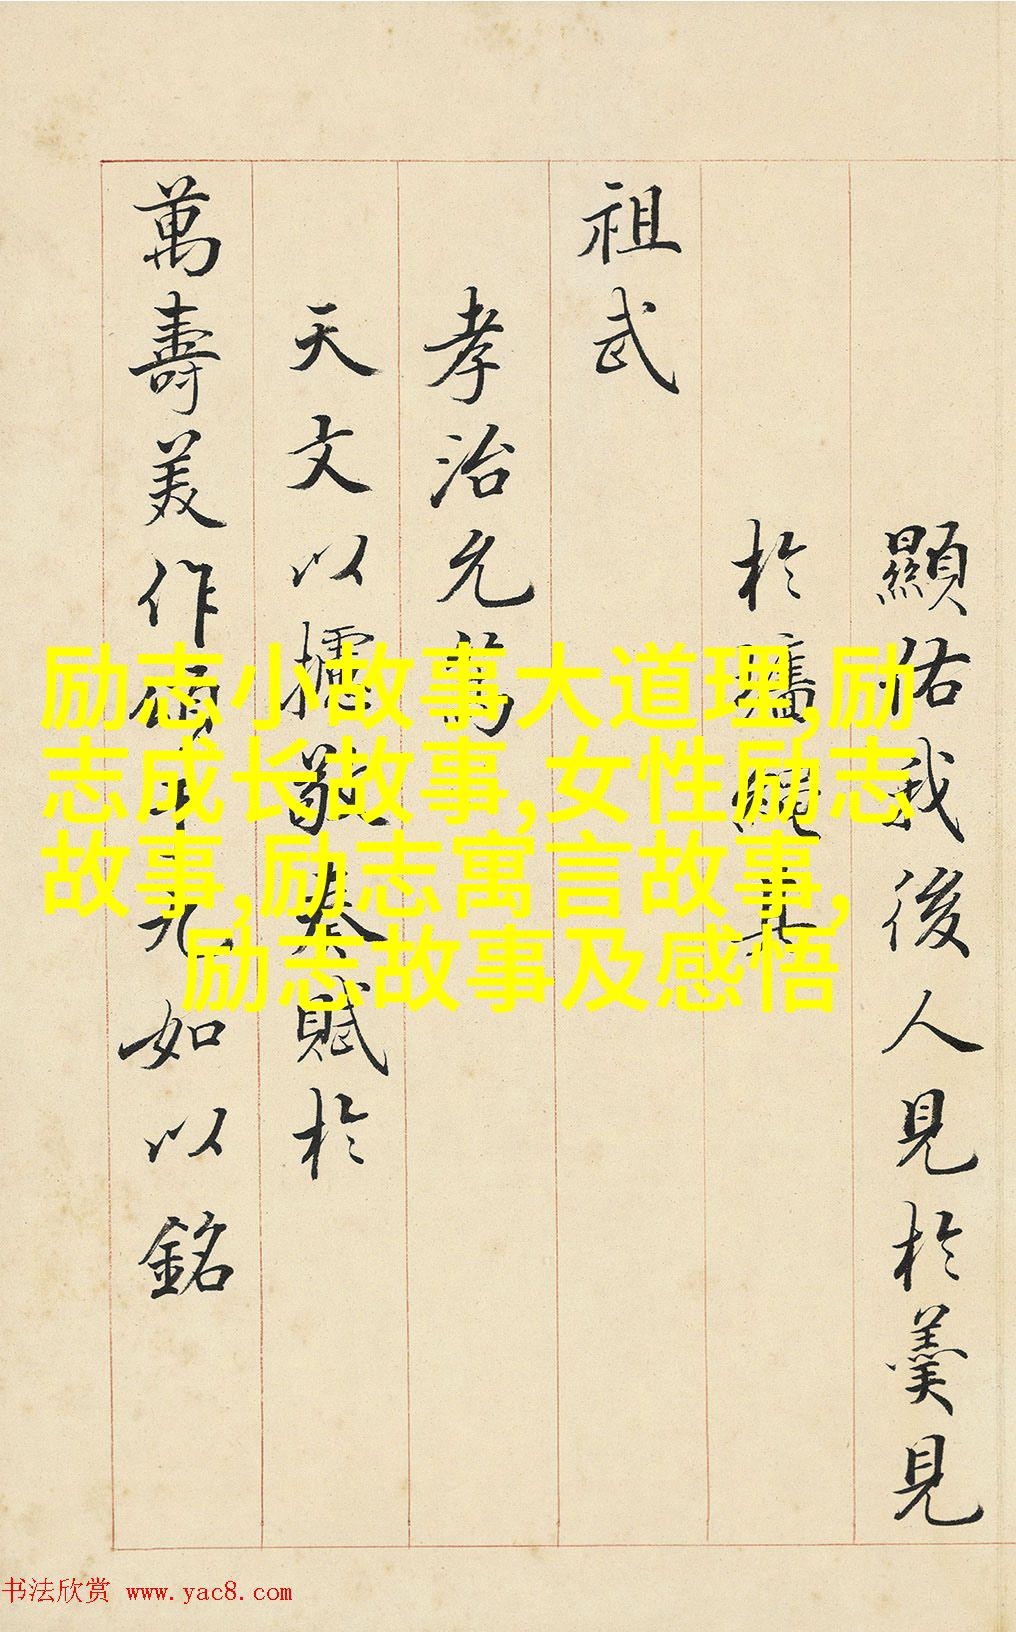 顯佑我後人見於羹見
於牆繩其
祖武
孝治允萬
天文以攄敬奏賦於
萬壽美作頌 九如以銘
励志小故事大道理,励
志成长故事,女性励志
故事,励志寓言故事,
励志故事及感悟
书法欣赏 www.yac8.com